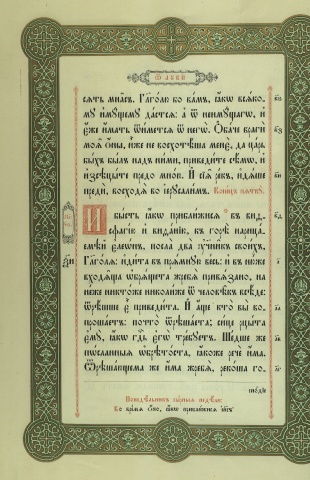 Ѿ лꙋки
сять мнасъ. Глаголю бо вамъ, ꙗкѡ всяко-
мꙋ имꙋщемꙋ дастся: а ѿ неимꙋщагѡ, и
еже имать ѿимется ѿ негѡ. Обаче враги
моя ѡны, иже не восхотѣша мене, да царь
быхъ былъ надъ ними, приведите сѣмѡ, и
изсѣцыте предо мною. И сія рекъ, идяше
преди, восходя во іерꙋсалимъ. Конецъ пяткꙋ.
И бысть ꙗкѡ приближися въ виѳ-
сфагію и виѳанію, къ горѣ нарица-
емѣй елеѡнъ, посла два ᲂу҆ченикъ своихъ,
Глаголя: идита въ прямнюю весь: въ ню же
входяща ѡбрящета жребя привязано, на
неже никтоже николиже ѿ человѣкъ всѣде:
ѿрѣшше е приведита. И аще кто вы во-
прошаетъ: почто ѿрѣшаета; сице рцыта
емꙋ, ꙗкѡ гдь егѡ требꙋетъ. Шедше же
посланная ѡбрѣтоста, ꙗкоже рече има.
Ѿрѣшающема же има жребя, рекоша го-
сподіе
Понедѣльникъ сырныя недѣли:
Во время ѻно, ꙗкѡ приближися іисъ